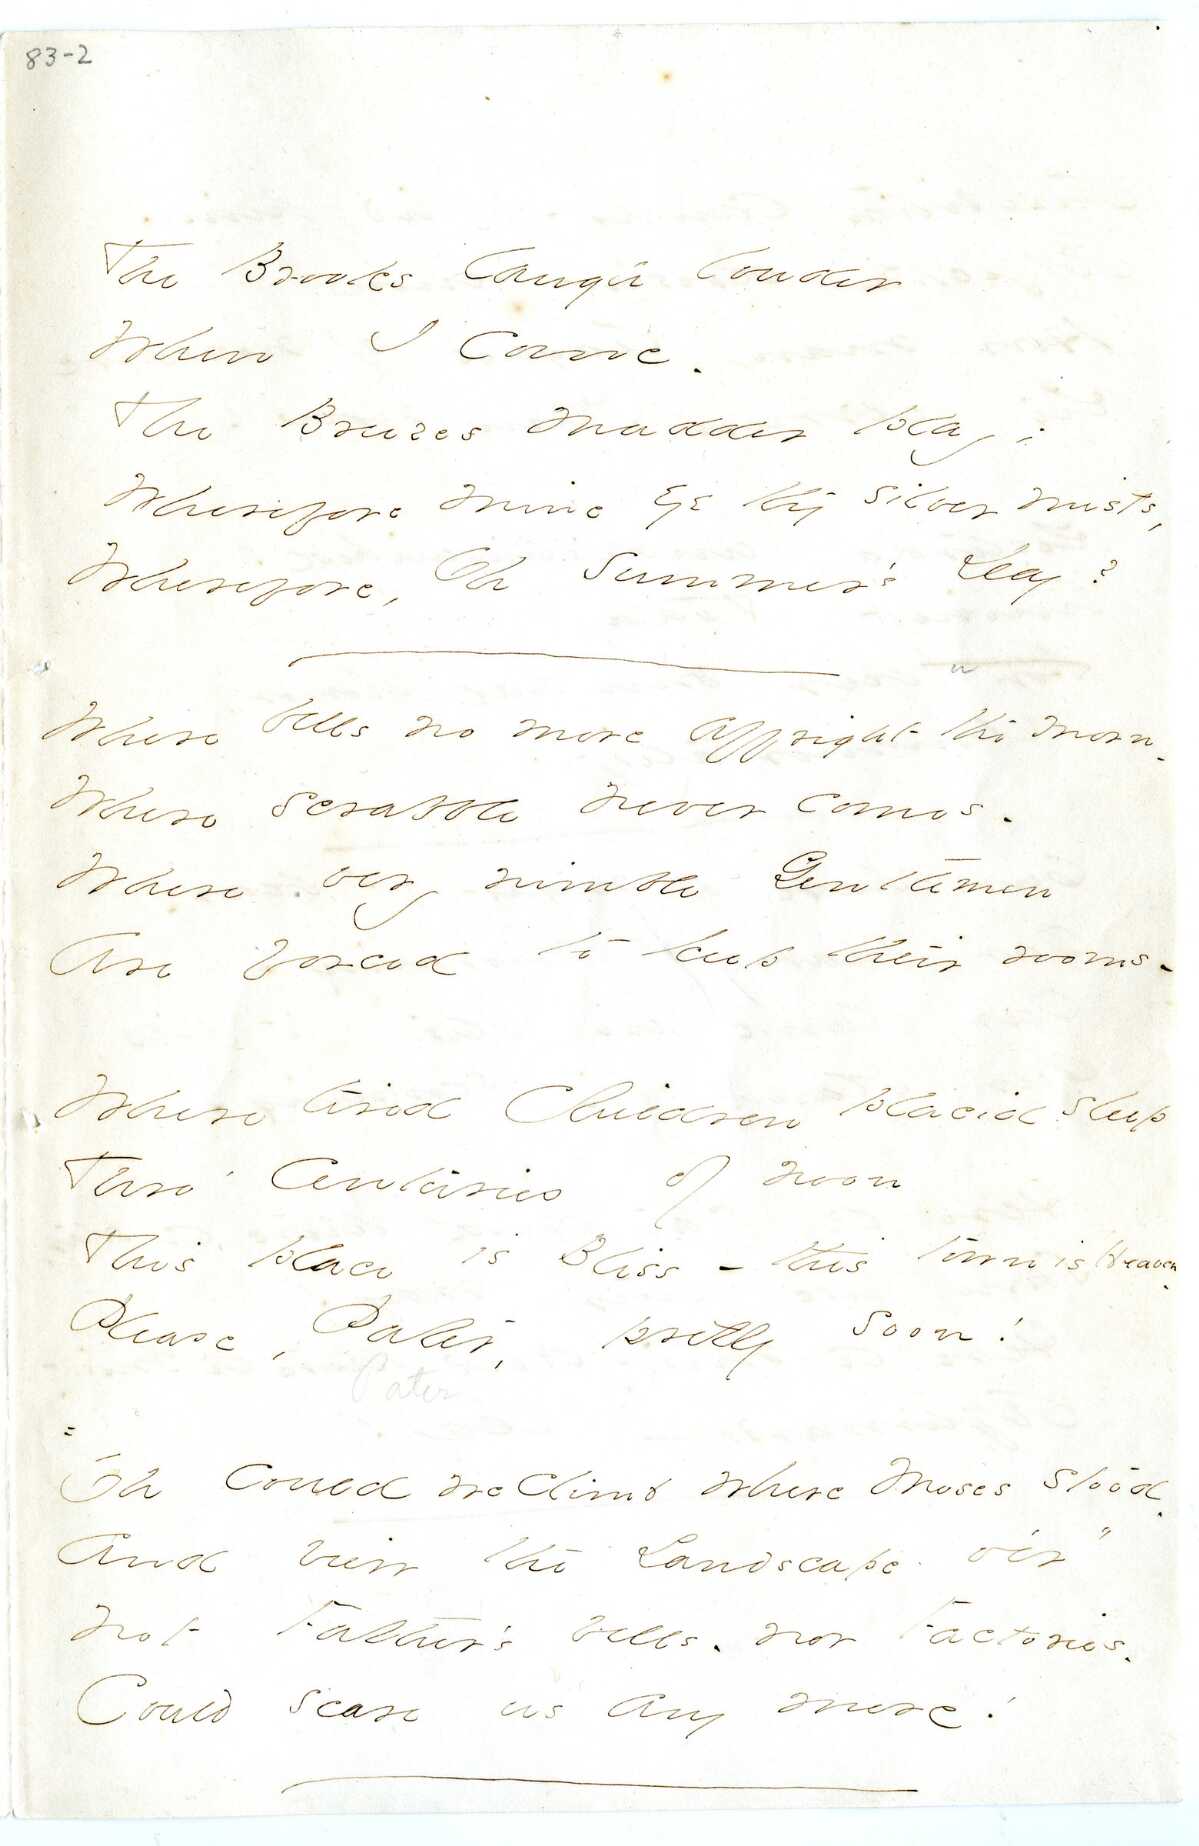 83-2
The Brooks laugh louder
When I come.
The Breezes madder play;
Wherefore mine eye thy silver mists,
Wherefore, Oh Summer's Day?
Where bells no more affright the morn.
Where scrabble never comes.
Where very nimble Gentlemen
Are forced to keep their rooms.
Where tired Children placid sleep
Thro' Centuries of noon
This place is Bliss - this town is Heaven.
Please, Pater, pretty soon!
Pater
"Oh could we climb where Moses stood.
And view the Landscape o'er"
not Father's bells. nor Factories.
Could scare us any more!